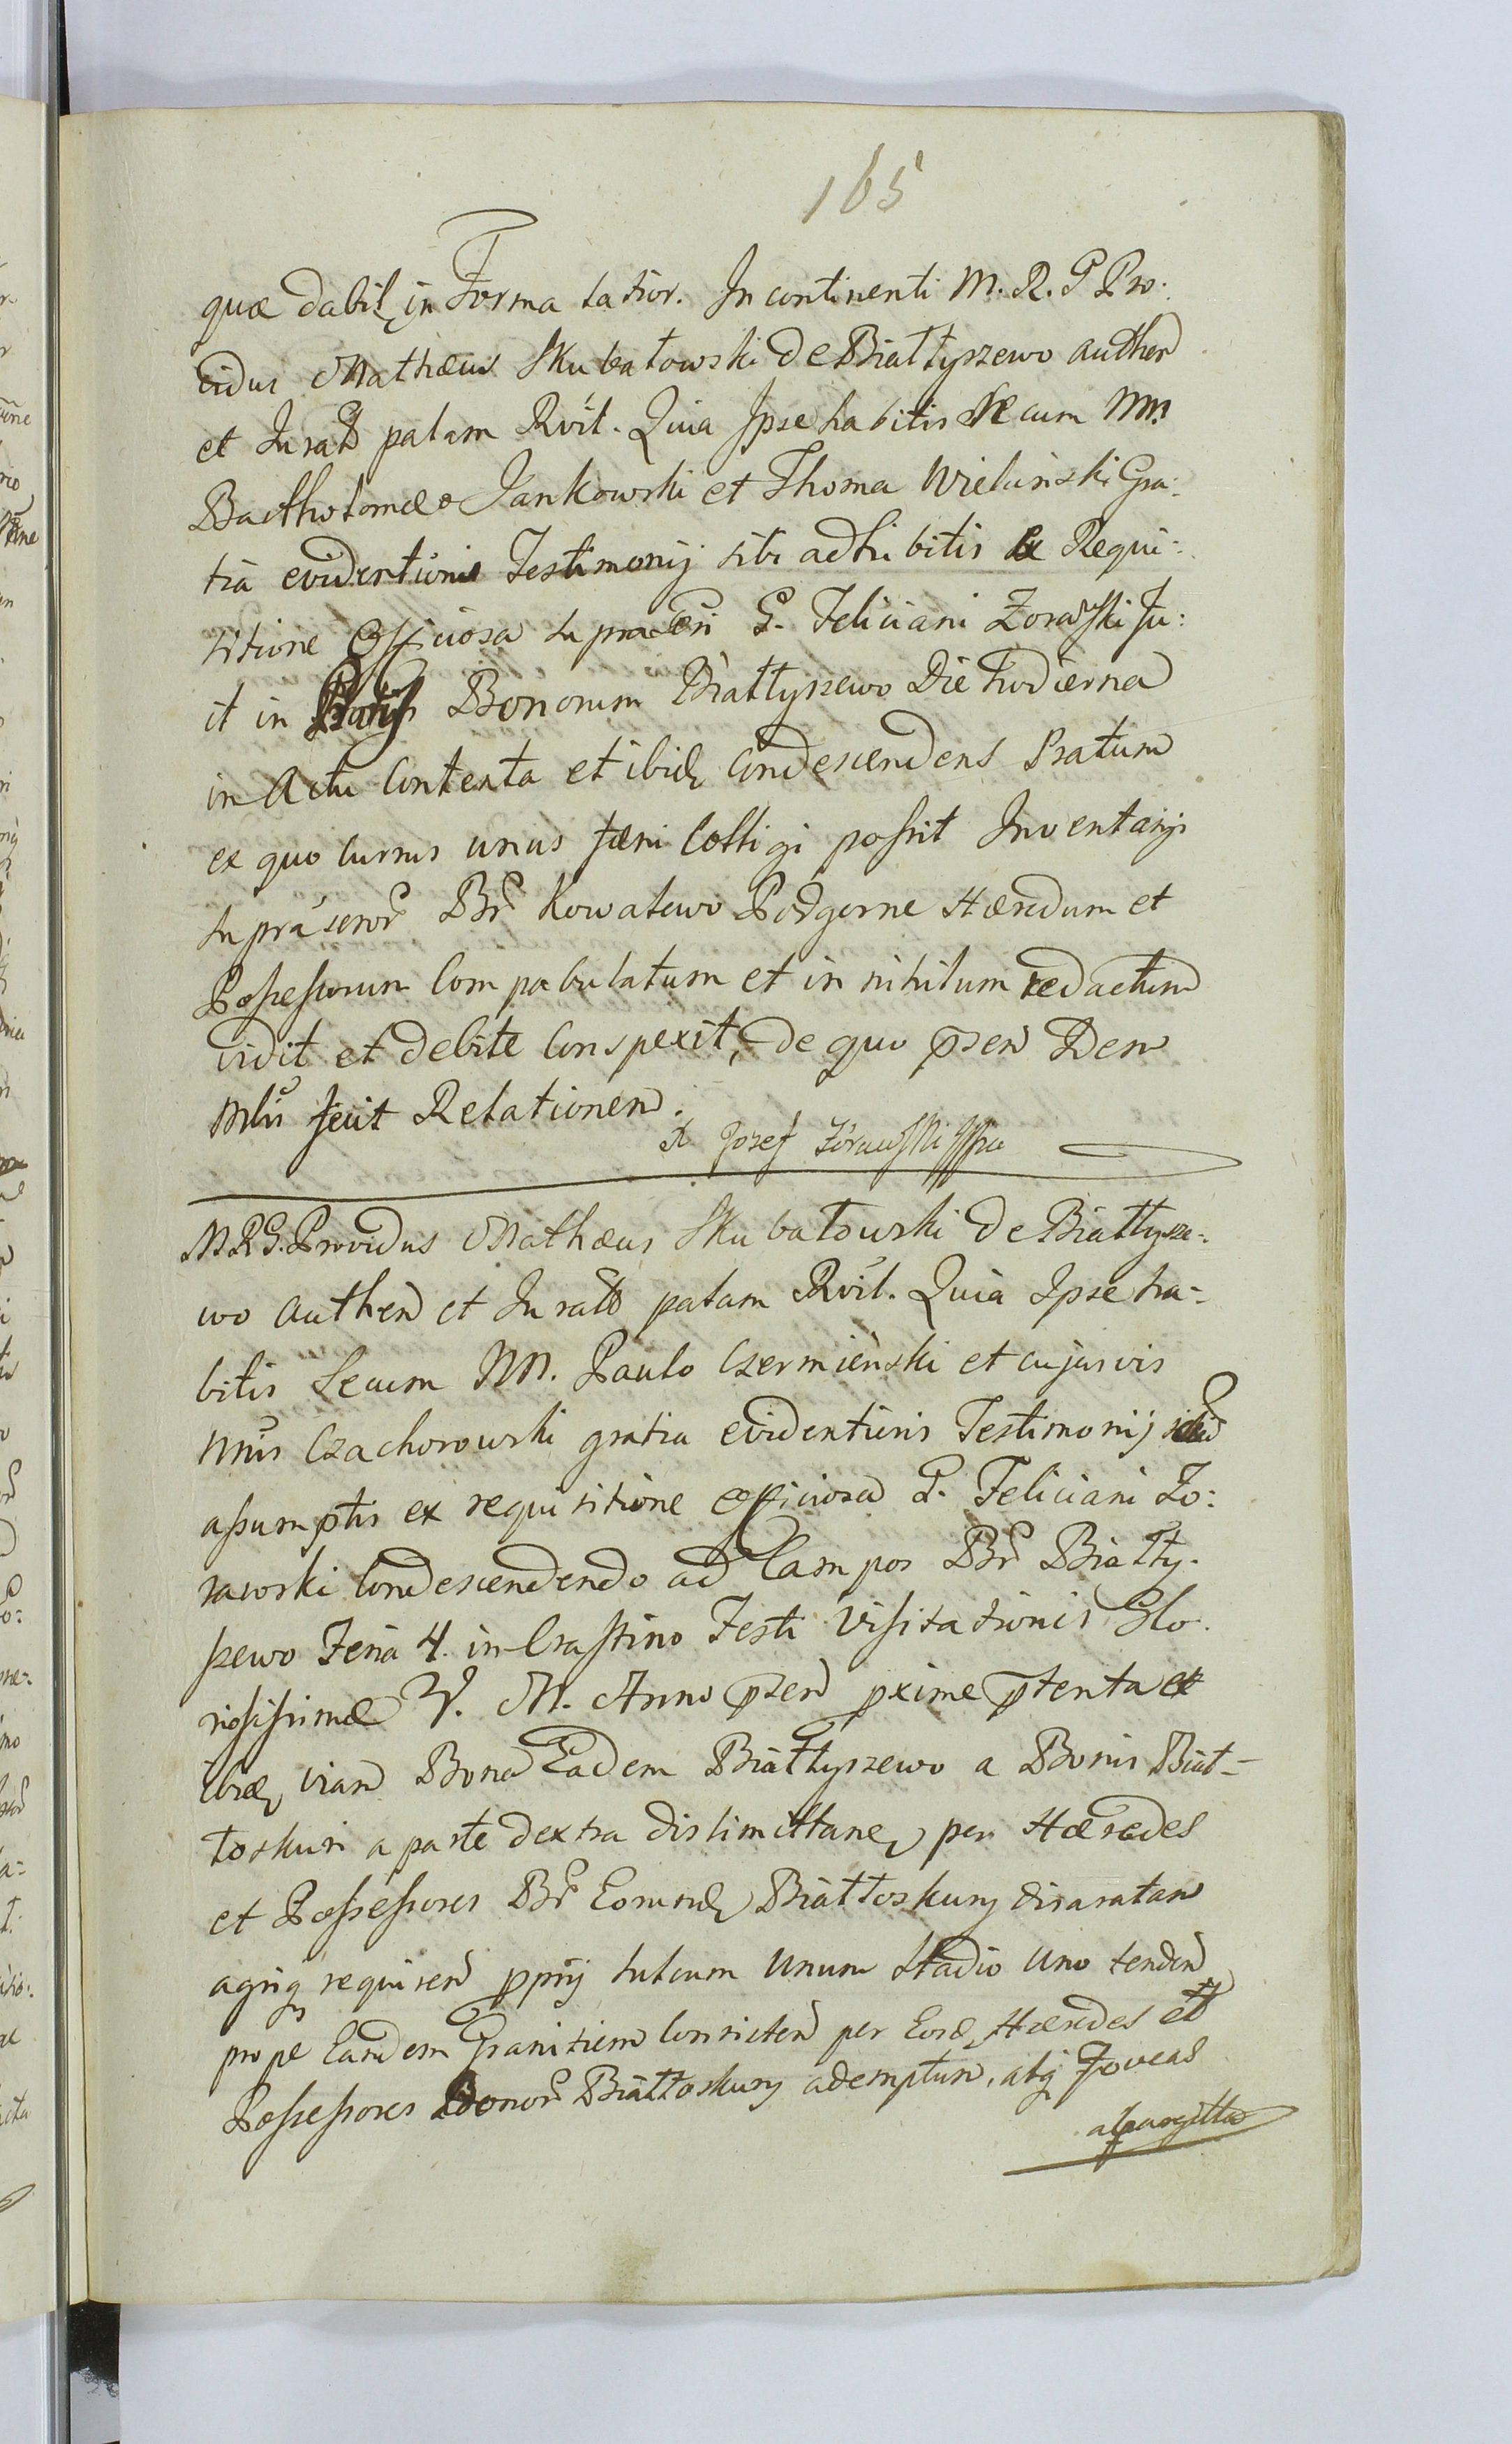 165
quæ dabit in Forma latior. In continenti M. R. G Pro-
vidus Mathæus Skubatowski de Białłyszewo authen
et Jurat palam Rvit. Quia Ipse habitis Secum NN.
Bartholomeo Jankowski et Thoma Wieluński Gra-
tia evidentionis Testimonij sibi adhibitis ex Requi-
sitione Officiosa supra G. Feliciani Zorawski Fu-
it in Pratis Bonorum Białłyszewo Die hodierna
in Actu Contenta et ibid Condescendens Pratum
ex quo Currus unus fæni Colligi possit Inventarijs
suprascror Br Kowalewo Podgorne Hæredum et
Possessorum Compabulatum et in nihilum redactum
vidit et debite Conspexit, de quo psen Den
Mlis fecit Relationem.
Jozef Żórawski
M.R.G. Providus Mathæus Skubatowski de Białłysze-
wo authen et Jurat palam Rvit. Quia Ipse ha-
bitis Secum NN. Paulo Czermieński et cujusvis
Nnis Czachorowski gratia evidentionis Testimonij
assumptis ex requisitione officiosa G. Feliciani Zo-
rawski Condescendendo ad Campos Br Białły-
szewo Feria 4. in Crastino Festi Visitationis Glo-
riosissimæ V. M. Anno psen pxime ptenta et
ibid viam Bona Eadem Białłyszewo a Bonis Biał-
łoskuri a parte dextra distimittane per Hæredes
et Possessores Br Eorund Białłoskury disaratam
agriq requiren pprij sulcum unum Stadio uno tenden
prope Eandem Granitiem Consisten per Eosd Hæredes et
Possessores Bonor Białłoskury ademptum, atq Foveas